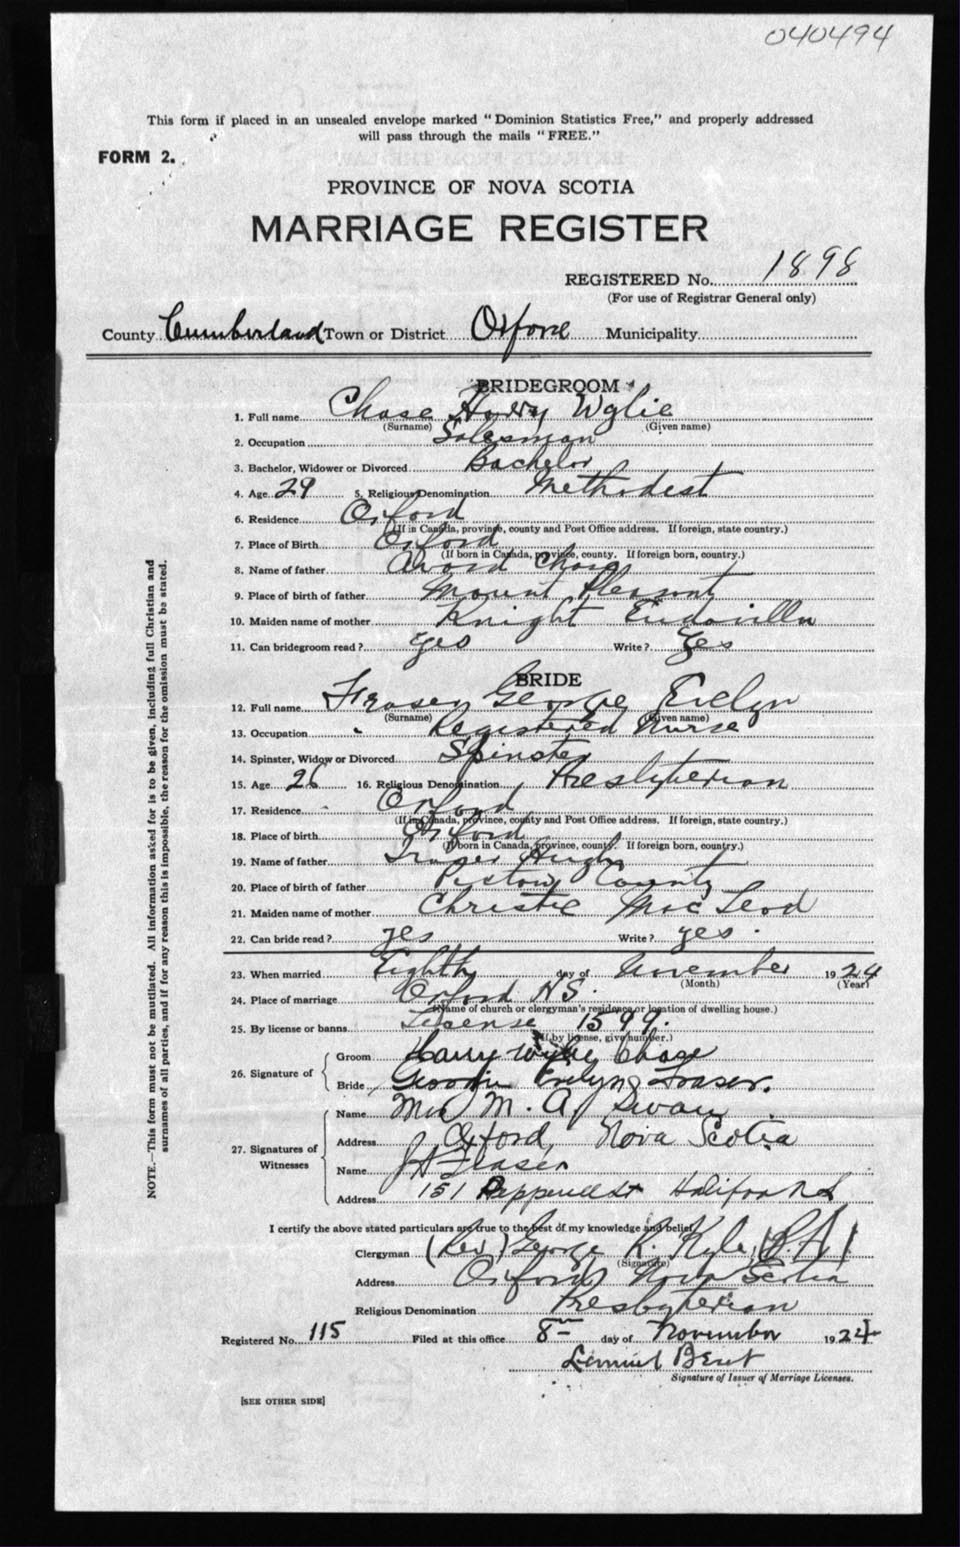 040494
This form if placed in an unsealed envelope marked "Dominion Statistics Free," and properly addressed
will pass through the mails "FREE."
FORM 2.
PROVINCE OF NOVA SCOTIA
MARRIAGE REGISTER
REGISTERED No. 1898
(For use of Registrar General only)
County Cumberland Town or District Oxford Municipality
BRIDEGROOM
1. Full name Chase Harry Wylie
(Surname) (Given name)
2. Occupation Salesman
3. Bachelor, Widower or Divorced Bachelor
4. Age 29 5. Religious Denomination Methodist
6. Residence Oxford
(If in Canada, province, county and Post Office address. If foreign, state country.)
7. Place of Birth Oxford
(If born in Canada, province, county. If foreign born, country.)
8. Name of father Chase
9. Place of birth of father Mount Pleasant
10. Maiden name of mother Knight
11. Can bridegroom read? yes Write? Yes
BRIDE
12. Full name Fraser George Evelyn
(Surname) (Given name)
13. Occupation Registered Nurse
14. Spinster, Widow or Divorced Spinster
15. Age 26 16. Religious Denomination Presbyterian
17. Residence Oxford
(If in Canada, province, county and Post Office address. If foreign, state country.)
18. Place of birth Oxford
(If born in Canada, province, county. If foreign born, country.)
19. Name of father Fraser Hugh
20. Place of birth of father Pictou County
21. Maiden name of mother Christie MacLeod
22. Can bride read? yes Write? yes.
23. When married Eighth day of November 1924
(Month) (Year)
24. Place of marriage Oxford N.S.
(Name of church or clergyman's residence or location of dwelling house.)
25. By license or banns License 1599.
(If by license, give number.)
26. Signature of
Groom Harry Wylie Chase
Bride Evelyn Fraser.
27. Signatures of Witnesses
Name Mrs M. A. Swan
Address Oxford, Nova Scotia
Name J H Fraser
Address 151 Halifax N S
I certify the above stated particulars are true to the best of my knowledge and belief.
Clergyman (Rev) George R. Kyle
(Signature)
Address Oxford Nova Scotia
Religious Denomination Presbyterian
Registered No. 115 Filed at this office 8th day of November 1924
Lemuel Bent
Signature of Issuer of Marriage Licenses.
[SEE OTHER SIDE]
NOTE.—This form must not be mutilated. All information asked for is to be given, including full Christian and
surnames of all parties, and if for any reason this is impossible, the reason for the omission must be stated.